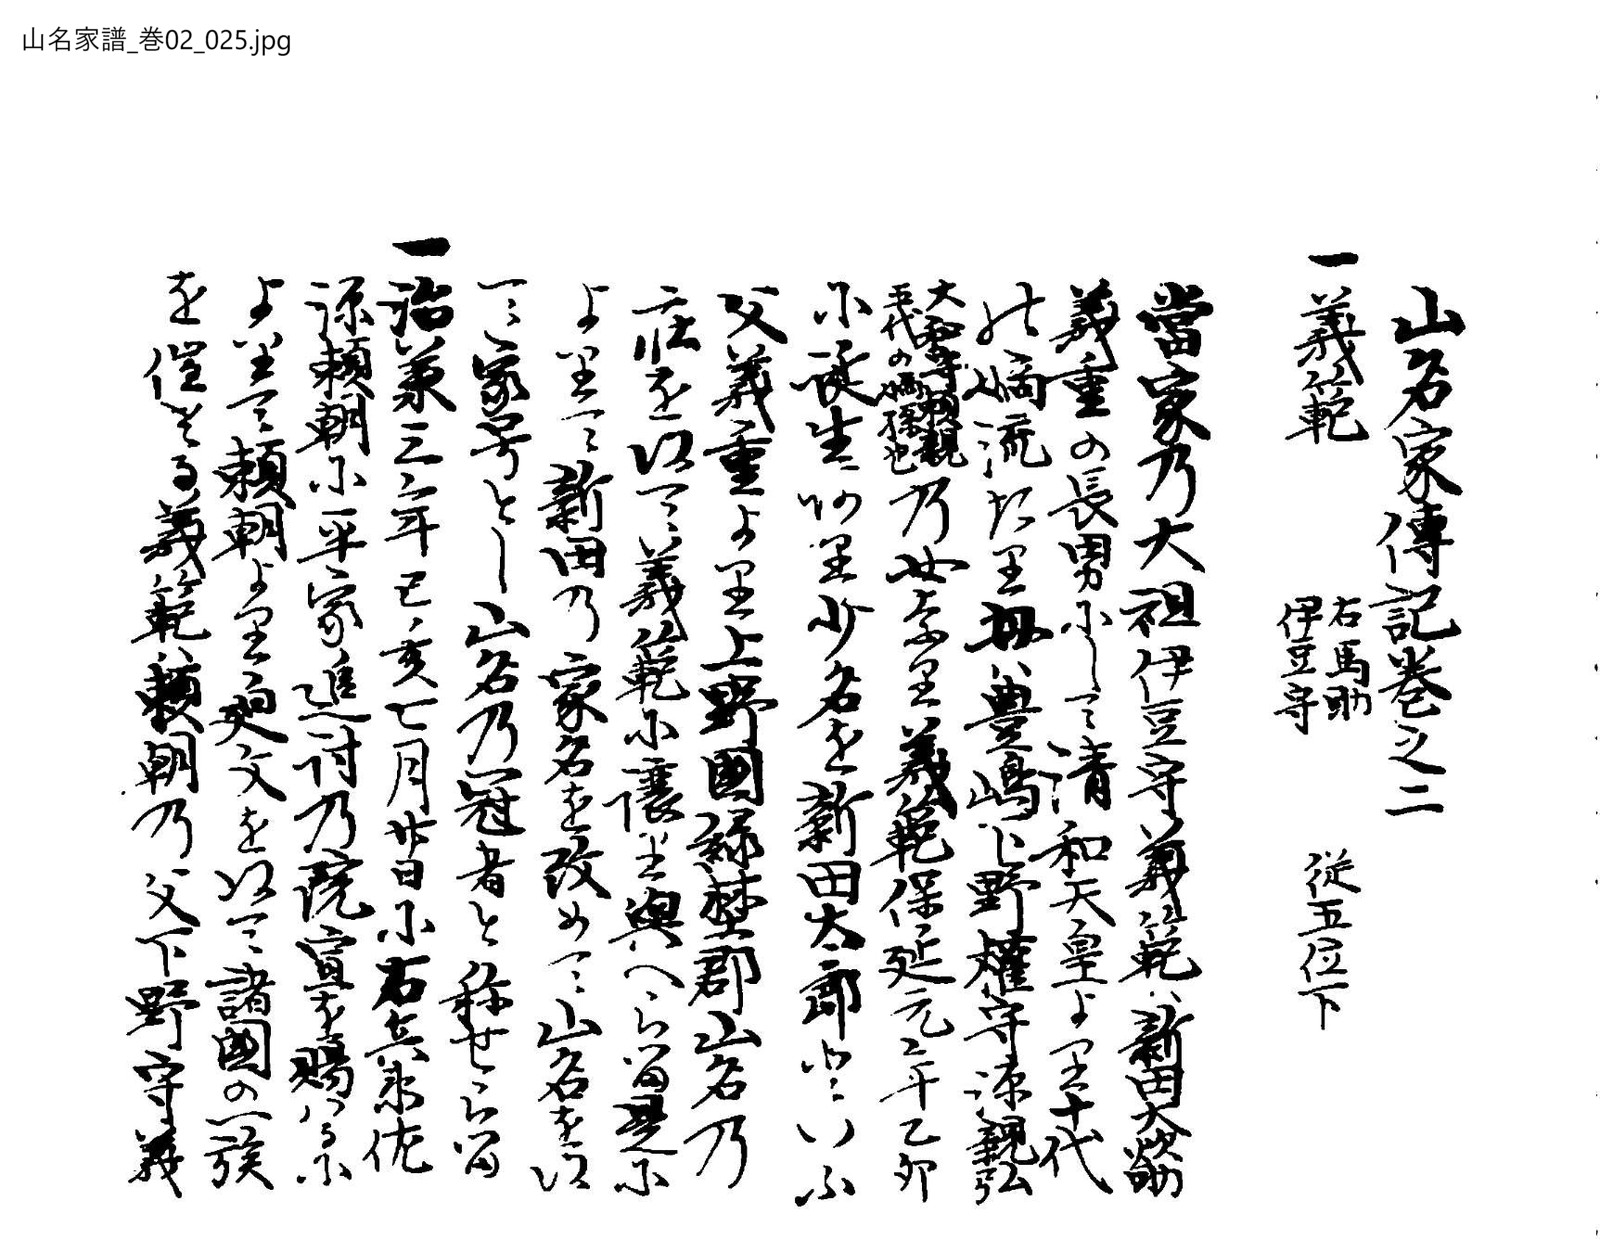 山名家譜_巻02_025.jpg
山名家傳記巻之二
一義範 右馬助 伊豆守 従五位下
當家乃大祖伊豆守義範ハ新田大炊助
義重の長男にして清和天皇より十代
の嫡流たり母ハ豊嶋下野權守源親弘
大和守頼親五代の嫡孫也乃女なり義範保延元年乙卯
に誕生あり少名を新田太郎といふ
父義重より上野國緑埜郡山名乃
庄を以て義範に讓り與へらる是に
よりて新田乃家名を改めて山名を以
て家号とし山名乃冠者と称せらる
一治承三年己亥七月廿日に右兵衛佐
源頼朝に平家追討乃院宣を賜ハるに
よりて頼朝より廻文を以て諸國の一族
を催せる義範ハ頼朝乃父下野守義